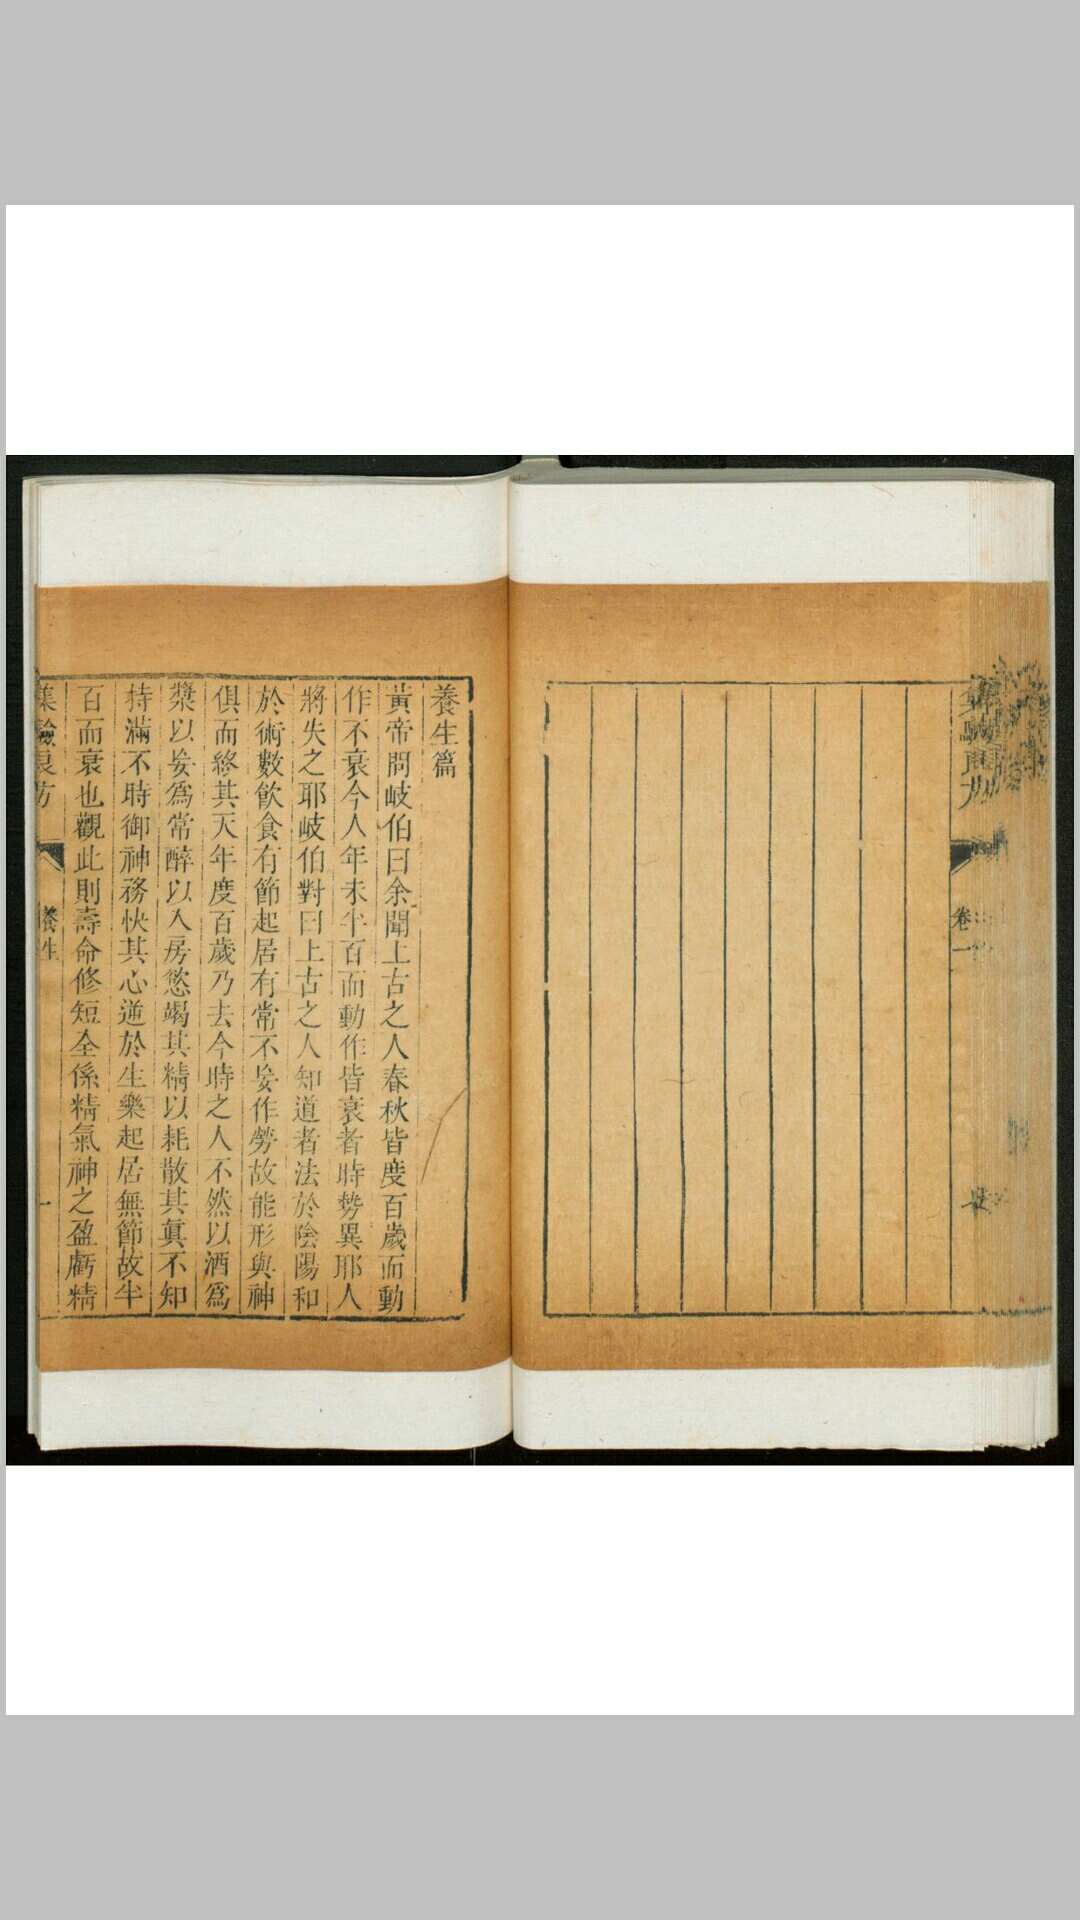 集驗良方
卷一
養生篇
黃帝問岐伯曰余聞上古之人春秋皆度百歲而動
作不衰今人年未半百而動作皆衰者時勢異耶人
將失之耶岐伯對曰上古之人知道者法於陰陽和
於術數飲食有節起居有常不妄作勞故能形與神
俱而終其天年度百歲乃去今時之人不然以酒爲
漿以妄爲常醉以入房慾竭其精以耗散其眞不知
持滿不時御神務快其心逆於生樂起居無節故半
百而衰也觀此則壽命修短全係精氣神之盈虧精
集驗良方
養生
一